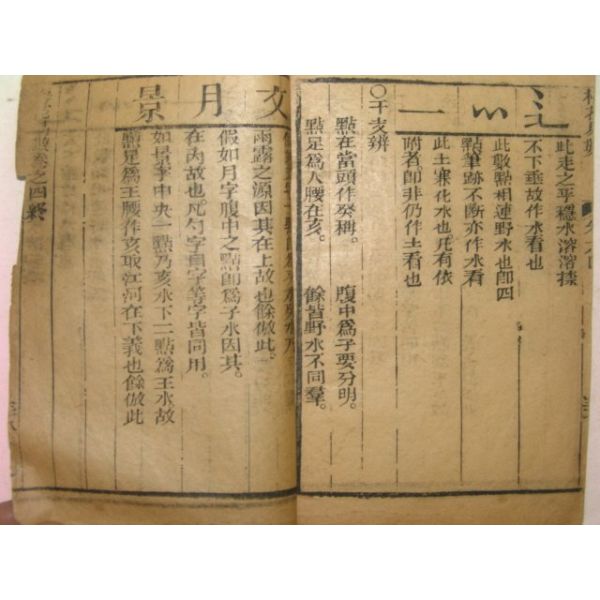 辶
此走之乎穩水溶溶㨿
不下垂故作水看也
灬
此㪚點相連野水也卽四
點筆跡不斷亦作水看
一
此土寒化水也凡有依
附者卽非仍作土看也
〇干支辨
點在當頭作癸稱。 腹中爲子要分明。
點足爲人腰在亥。 餘皆野水不同羣。
文
雨露之源因其在上故也餘倣此。
月
假如月字腹中之點卽爲子水因其。
在內故也。凡勺字自字等字皆同用。
景
如景字中央一點乃亥水下二點爲壬水故
點足爲壬腰作亥取江河在下義也餘倣此
卷之四終